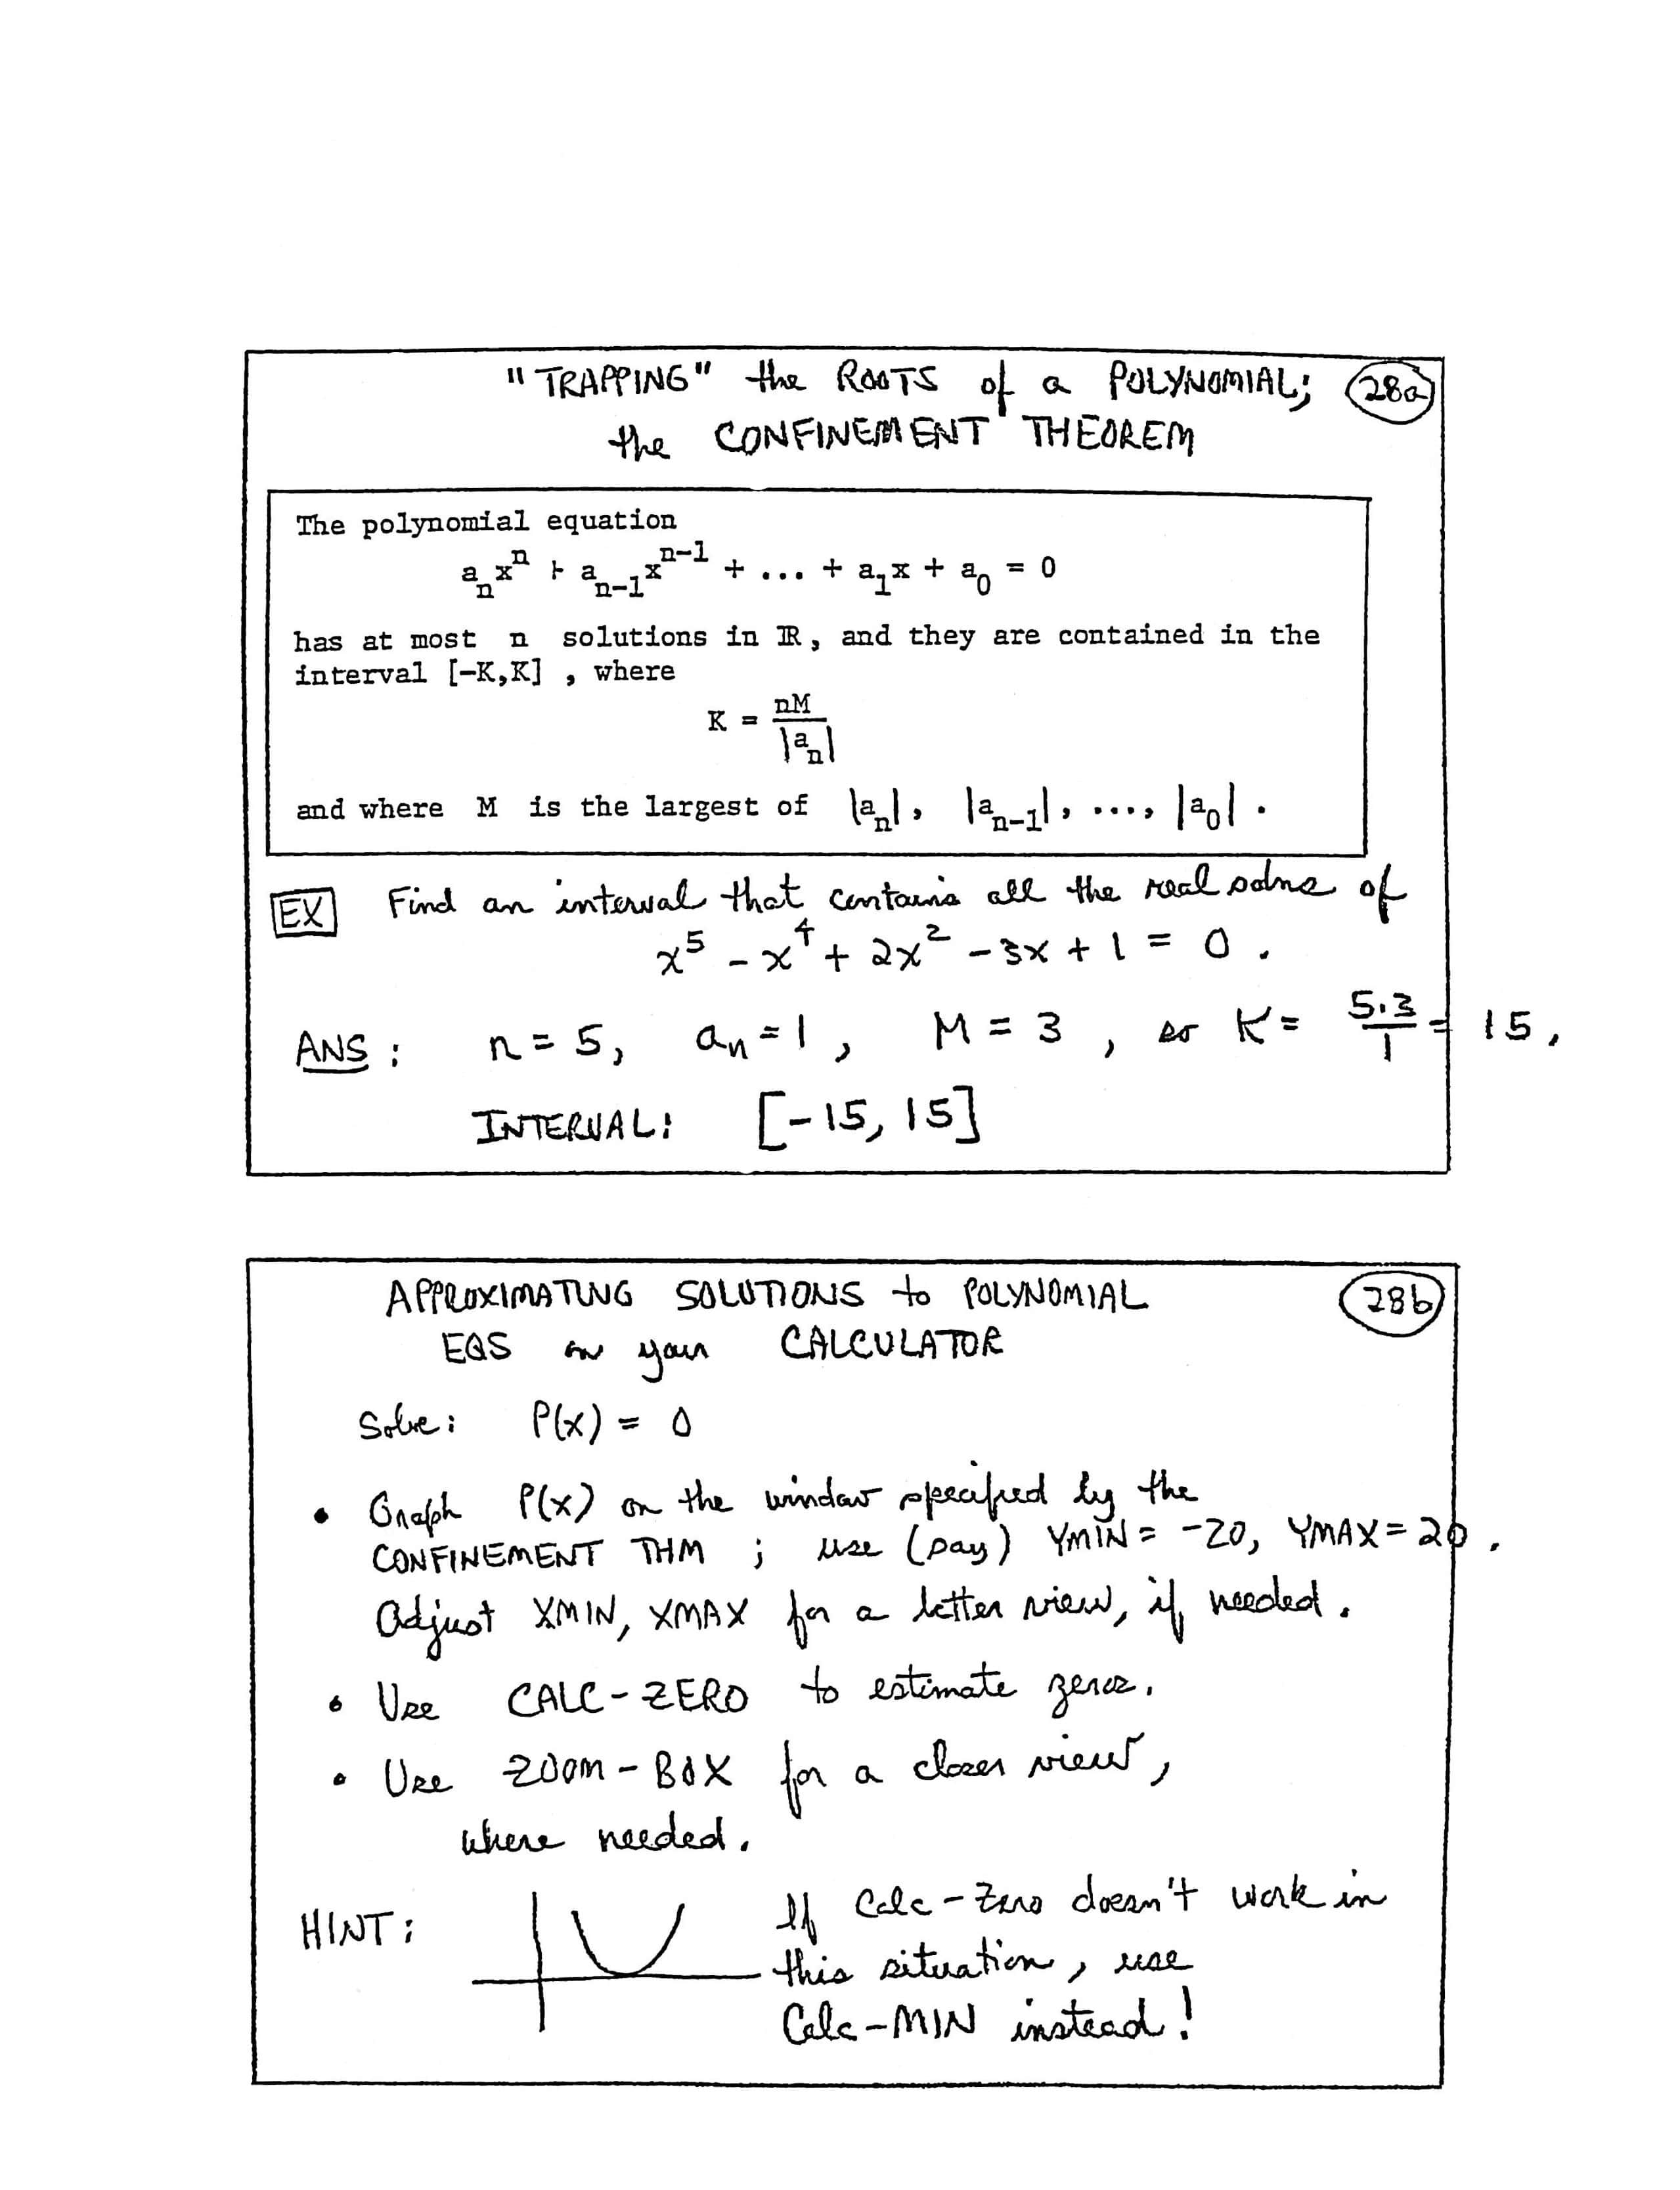 "TRAPPING" the ROOTS of a POLYNOMIAL; 28a
the CONFINEMENT THEOREM
The polynomial equation
aₙxⁿ + aₙ₋₁xⁿ⁻¹ + ... + a₁x + a₀ = 0
has at most n solutions in ℝ, and they are contained in the
interval [-K,K] , where
K = nM / |aₙ|
and where M is the largest of |aₙ|, |aₙ₋₁|, ..., |a₀| .
EX Find an interval that contains all the real solns of
x⁵ - x⁴ + 2x² - 3x + 1 = 0 .
ANS : n = 5, aₙ = 1 , M = 3 , so K = 5·3/1 = 15 ,
INTERVAL: [-15, 15]
APPROXIMATING SOLUTIONS to POLYNOMIAL 28b
EQS on your CALCULATOR
Solve: P(x) = 0
• Graph P(x) on the window specified by the
CONFINEMENT THM ; use (say) YMIN = -20, YMAX = 20 .
Adjust XMIN, XMAX for a better view, if needed.
• Use CALC-ZERO to estimate zeros.
• Use ZOOM-BOX for a closer view,
where needed.
HINT: If Calc-Zero doesn't work in
this situation, use
Calc-MIN instead!